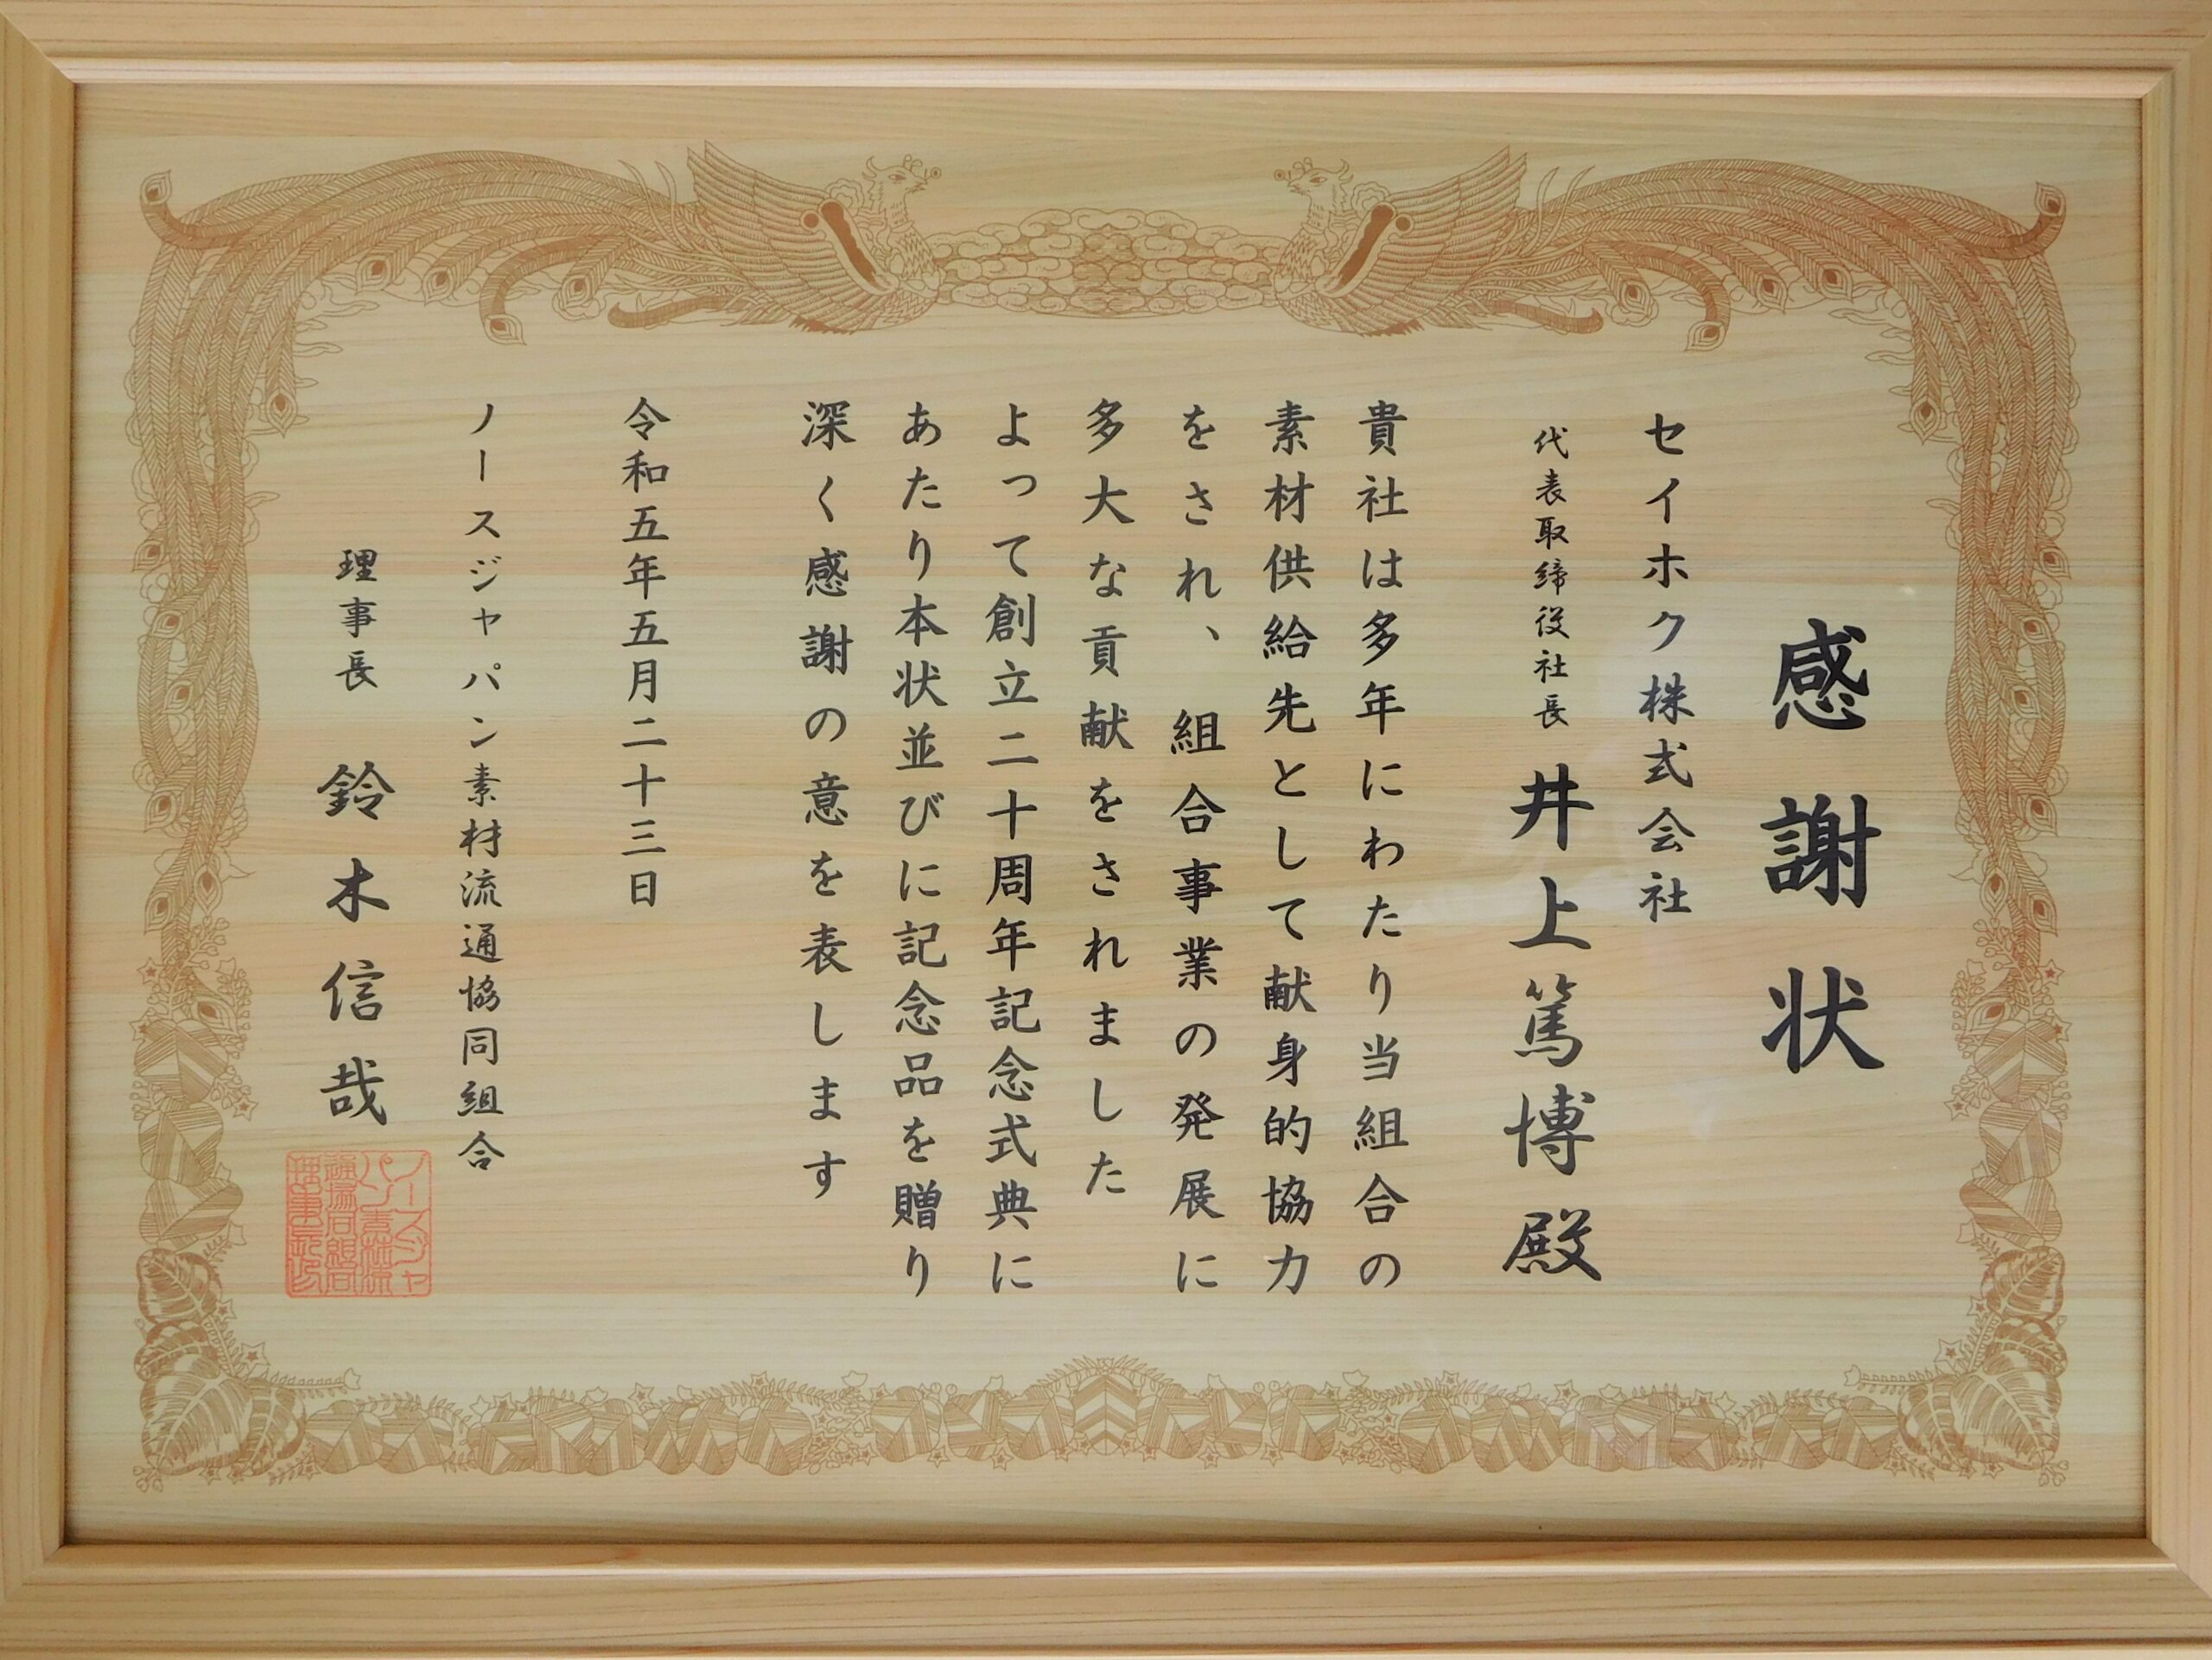 感謝状
セイホク株式会社
代表取締役社長 井上篤博殿
貴社は多年にわたり当組合の
素材供給先として献身的協力
をされ、組合事業の発展に
多大な貢献をされました
よって創立二十周年記念式典に
あたり本状並びに記念品を贈り
深く感謝の意を表します
令和五年五月二十三日
ノースジャパン素材流通協同組合
理事長 鈴木信哉
ノースジャ
パン素材流
通協同組合
理事長印